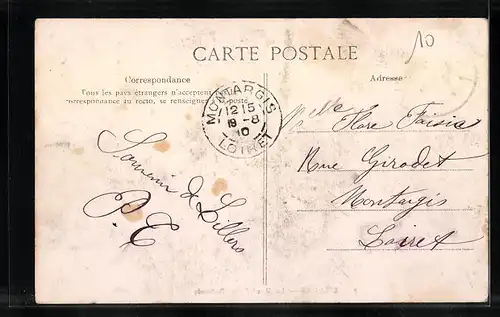 10
CARTE POSTALE
Correspondance
Tous les pays étrangers n'acceptent
correspondance au recto, se renseigner poste
Adresse
MONTARGIS
12 15
18 -8
10
LOIRET
Souvenir de Lillers
P.E
Melle Flore
Rue Girodet
Montargis
Loiret